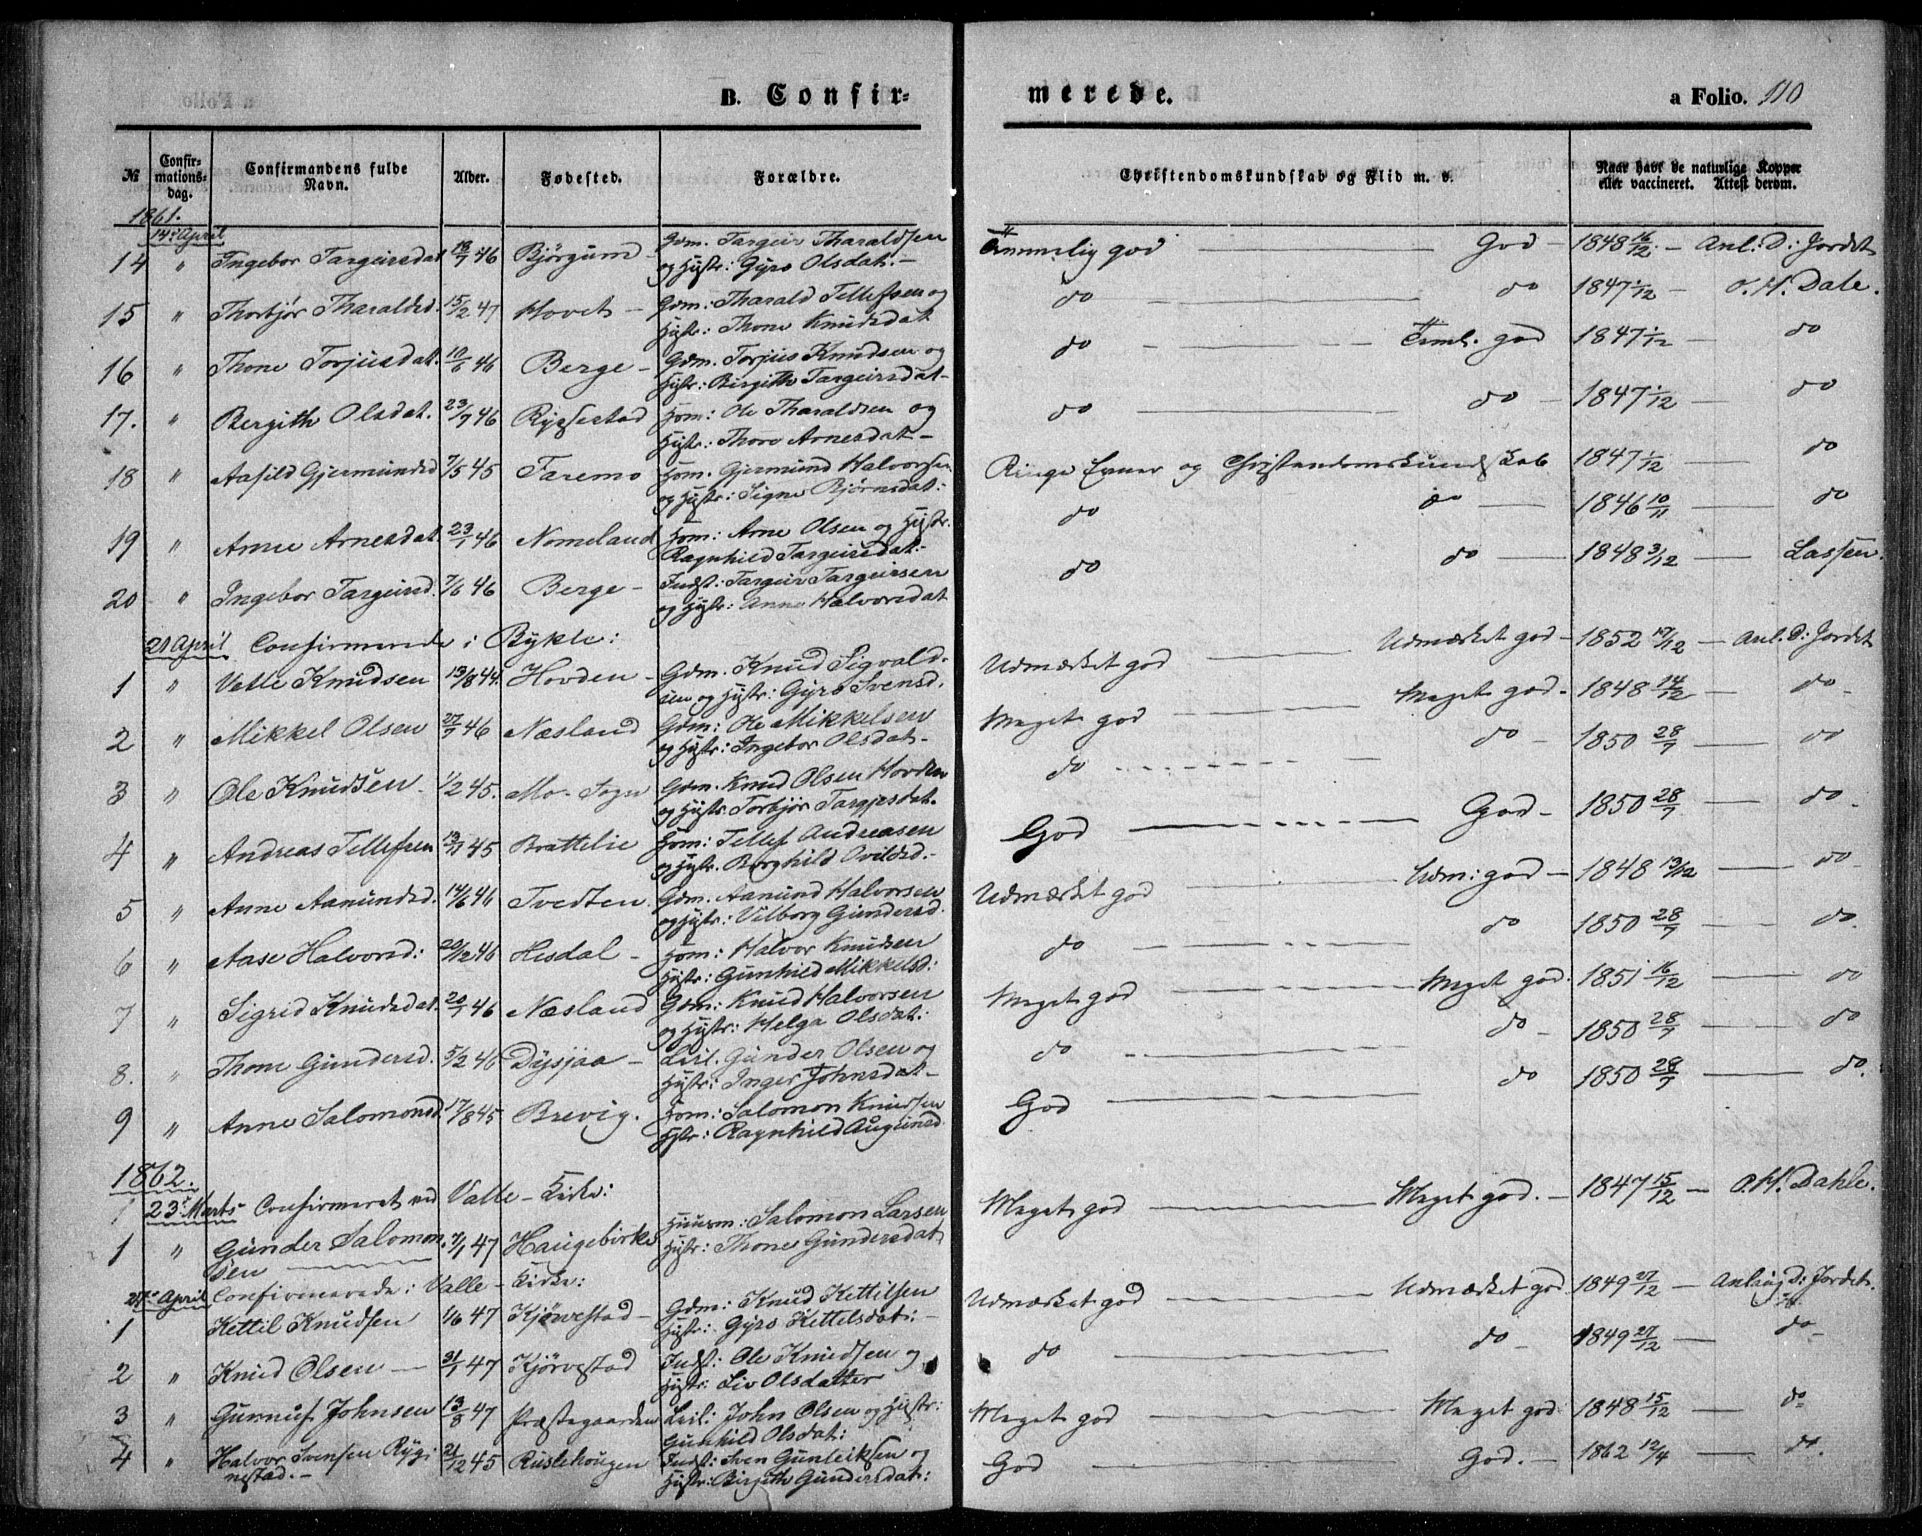 B. Confir-
merede.
a Folio. 110
№
Confir-
mations-
dag.
Confirmandens fulde
Navn.
Alder.
Fødested.
Forældre.
Christendomskundskab og Flid m. v.
Naar havt de naturlige Kopper
eller vaccineret. Attest derom.
1861.
14de April
14 " Ingebor Targeirsdat 13/7 46 Bjørgum - Gdm. Targeir Tharaldsen
og Hustr: Gyro Olsdat.- Temmelig god God - 1848 16/12. - Anl. D: Jordet
15 " Thorbjør Tharaldsd. 15/2 47 Hovet - Gdm: Tharald Tellefsen og
Hustr: Thone Knudsdat do do 1847 1/12 - O. H. Dale.
16 " Thone Torjusdat. 10/6 46 Berge - Gdm: Torjus Knudsen og
Hustr: Birgith Targeirsdat- do Teml. god 1847 1/12 - do
17. " Bergith Olsdat. 23/7 46 Ryssestad Hom: Ole Tharaldsen og
Hustr: Thore Arnesdat - do do - 1847 1/12 - do
18 " Aasild Gjermundsd 7/5 45 Faremo Hom. Gjermund Halvorsen
og Hustr: Signe Bjørnsdat: Ringe Evner og Christendomskundskab 1847 1/12 - do
19 " Anne Arnesdat 23/1 46 Nomeland Hom: Arne Olsen og Hustr.
Ragnhild Targeirsdat:- do do 1846 10/11 - do
20 " Ingebor Targeirsd. 7/6 46 Berge - Indst: Targeir Targeirsen
og Hustr: Anne Halvorsdat do do 1848 3/12 - Lassen.
21 April Confirmerede i Bykle:
1 " Valle Knudsen 13/8 44. Hovden - Gdm. Knud Sigvald-
sen og Hustr: Gyro Svensd. Udmærket god Udmærket god - 1852 17/12 - Anl. D: Jordet
2 " Mikkel Olsen 27/7 46 Næsland Gdm: Ole Mikkelsen
og Hustr: Ingebor Olsdat- Meget god Meget god - 1848 14/12 - do -
3 " Ole Knudsen - 1/2 45. Mo- Sogn Gdm. Knud Olsen Hovden
og Hustr Torbjør Targjesdat. do do - 1850 28/7 - do
4 " Andreas Tellefsen 13/11 45 Brattelie Hom: Tellef Andreasen
og Hustr. Borghild Ovildsd.- God God - 1850 28/7 - do -
5 " Anne Aamundsd. 14/6 46 Tvedten Gdm. Aamund Halvorsen
og Hustr: Vilborg Gundersd. Udmærket god Udm: god - 1848 13/12 - do -
6 " Aase Halvorsd: 20/12 46 Hesdal - Hom: Halvor Knudsen
Hustr: Gunhild Mikkelsd: do do 1850 28/7 - do.
7 " Sigrid Knudsdat. 20/7 46 Næsland Gdm: Knud Halvorsen
og Hustr: Helga Olsdat: Meget god Meget god. 1851 16/12 - do
8. " Thone Gundersd. 5/2 46 Dysjaa - Leil. Gunder Olsen og
Hustr: Inger Johnsdat - do do - 1850 28/7 - do
9 " Anne Salomonsd. 17/8 45 Brevig. Hom: Salomon Knudsen
Hustr: Ragnhild Augunsd. God do 1850 28/7 - do.
1862.
1 23de Marts Confirmeret ved Valle - Kirke:
1 " Gunder Salomon-
sen 7/1 47 Haugebirke Huusm: Salomon Larsen
Hustr: Thone Gundersdat. Meget god Meget god. - 1847 15/12 - O. H. Dahle.
27de April Confirmerede i Valle - Kirke:
1 Kettil Knudsen 1/6 47 Kjørvestad - Gdm: Knud Kettilsen
Hustr: Gyro Kettelsdat: - Udmærket god Udmærket god 1849 27/12 - Anl: D: Jordet.
2 " Knud Olsen - 31/1 47 Kjørvestad Indst: Ole Knudsen og
Hustr: Liv Olsdatter do do - 1849 27/12 - do -
3 " Gunnuf Johnsen 13/8 47 Præstegaarden Leil: John Olsen og Hustr:
Gunhild Olsdat: Meget god Meget god 1848 15/12 - do
4 " Halvor Svensen Rygi-
nestad. - 21/12 45 Ruslehougen Indst: Sven Gunleiksen og
Hustr: Birgith Gundersdat: God God. - 1862 12/4 - do.